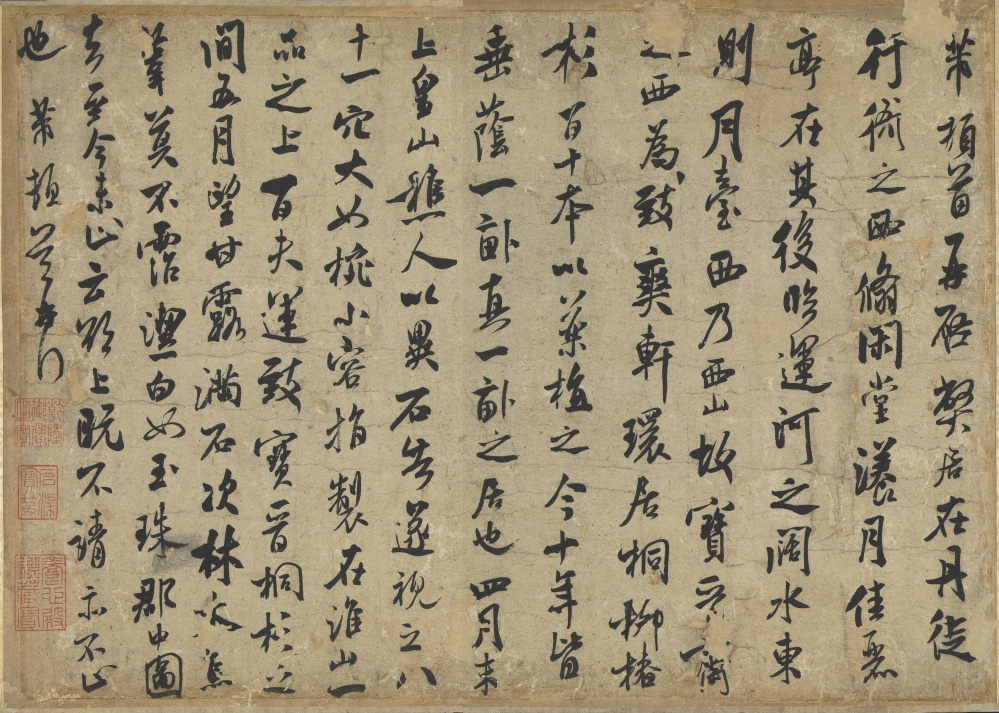 芾頓首再啟弊居在丹徒
行衙之西翛閑堂漾月佳麗
亭在其後臨運河之闊水東
則月臺西乃西山故寶晉齋
之西為致爽軒環居桐柳椿
杉百十本以藥植之今十年皆
垂蔭一畝真一畝之居也四月末
上皇山樵人以異石告遂視之八
十一穴大如椀小容指製在淮山一
品之上百夫運致寶晉桐杉之
間五月望甘露滿石次林焉
莫不霑白如玉珠郡中圖
去至今未止云欲上既不請亦不止
也芾頓首再拜